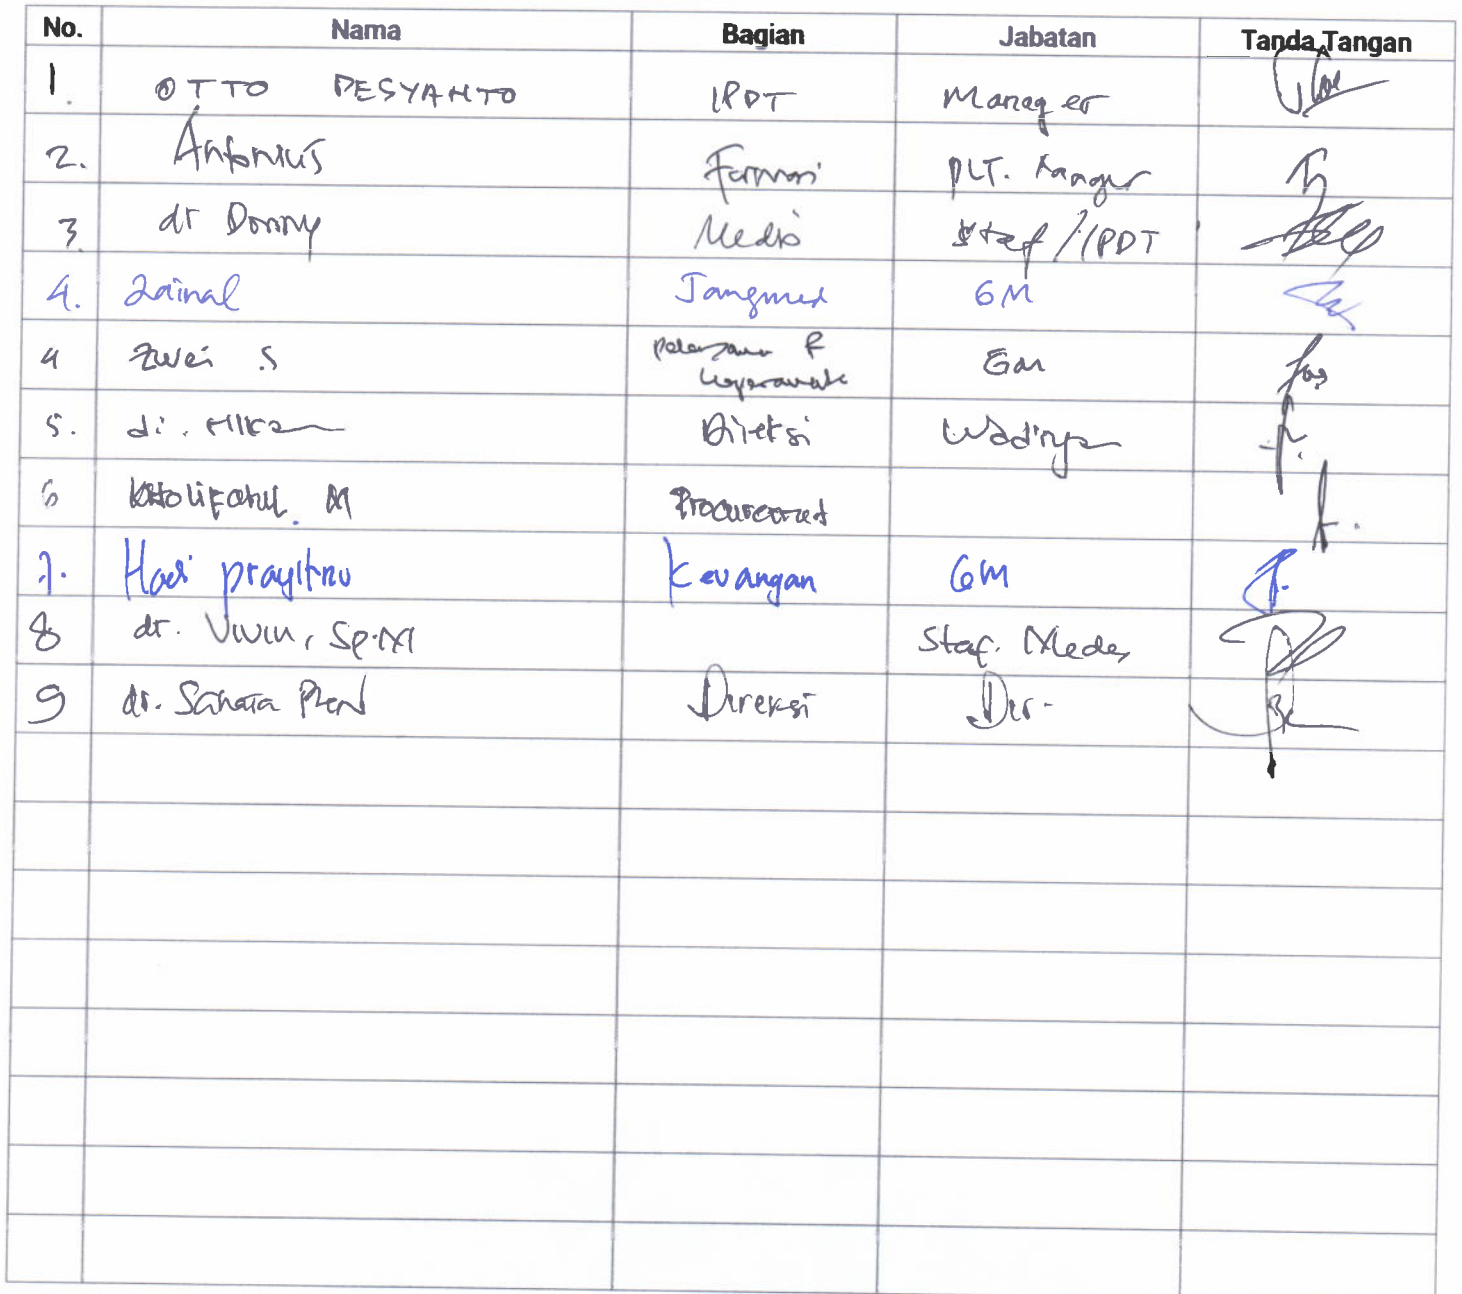 No. Nama Bagian Jabatan Tanda Tangan
1. OTTO DESYANTO IPDT Manager
2. Antonius Farmasi PLT. Manager
3. dr Donny Medis Staf / IPDT
4. Zainal Jangmed GM
4 Zwei S GM
5. Direksi
6 Kholifatul M Procurement
7. Hadi prayitno Keuangan GM
8 dr. Vivin, Sp.M Staf. Medis
9 dr. Direksi Dir.